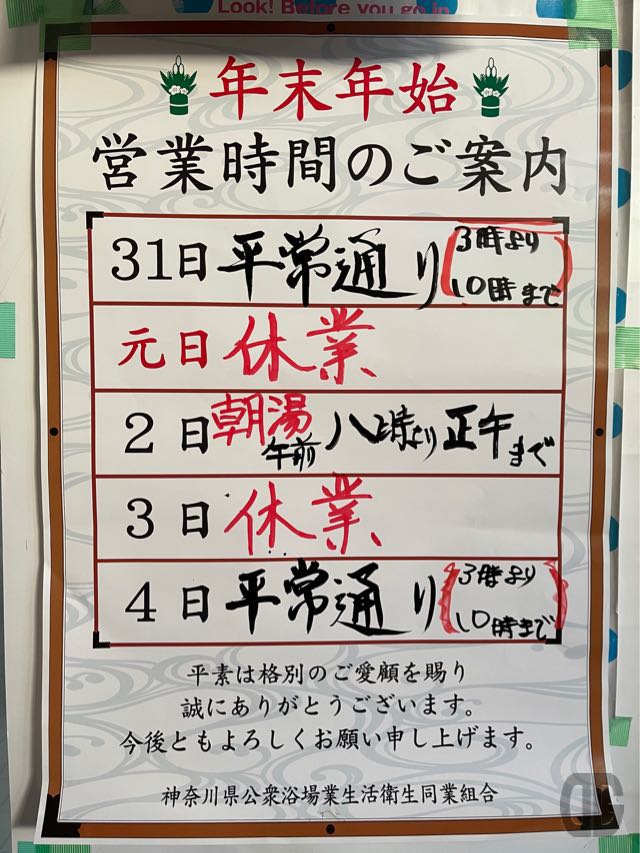 Look! Before you go in
年末年始
営業時間のご案内
31日 平常通り 3時より
10時まで
元日 休業
2日 朝湯 午前 八時より正午まで
3日 休業
4日 平常通り 3時より
10時まで
平素は格別のご愛顧を賜り
誠にありがとうございます。
今後ともよろしくお願い申し上げます。
神奈川県公衆浴場業生活衛生同業組合